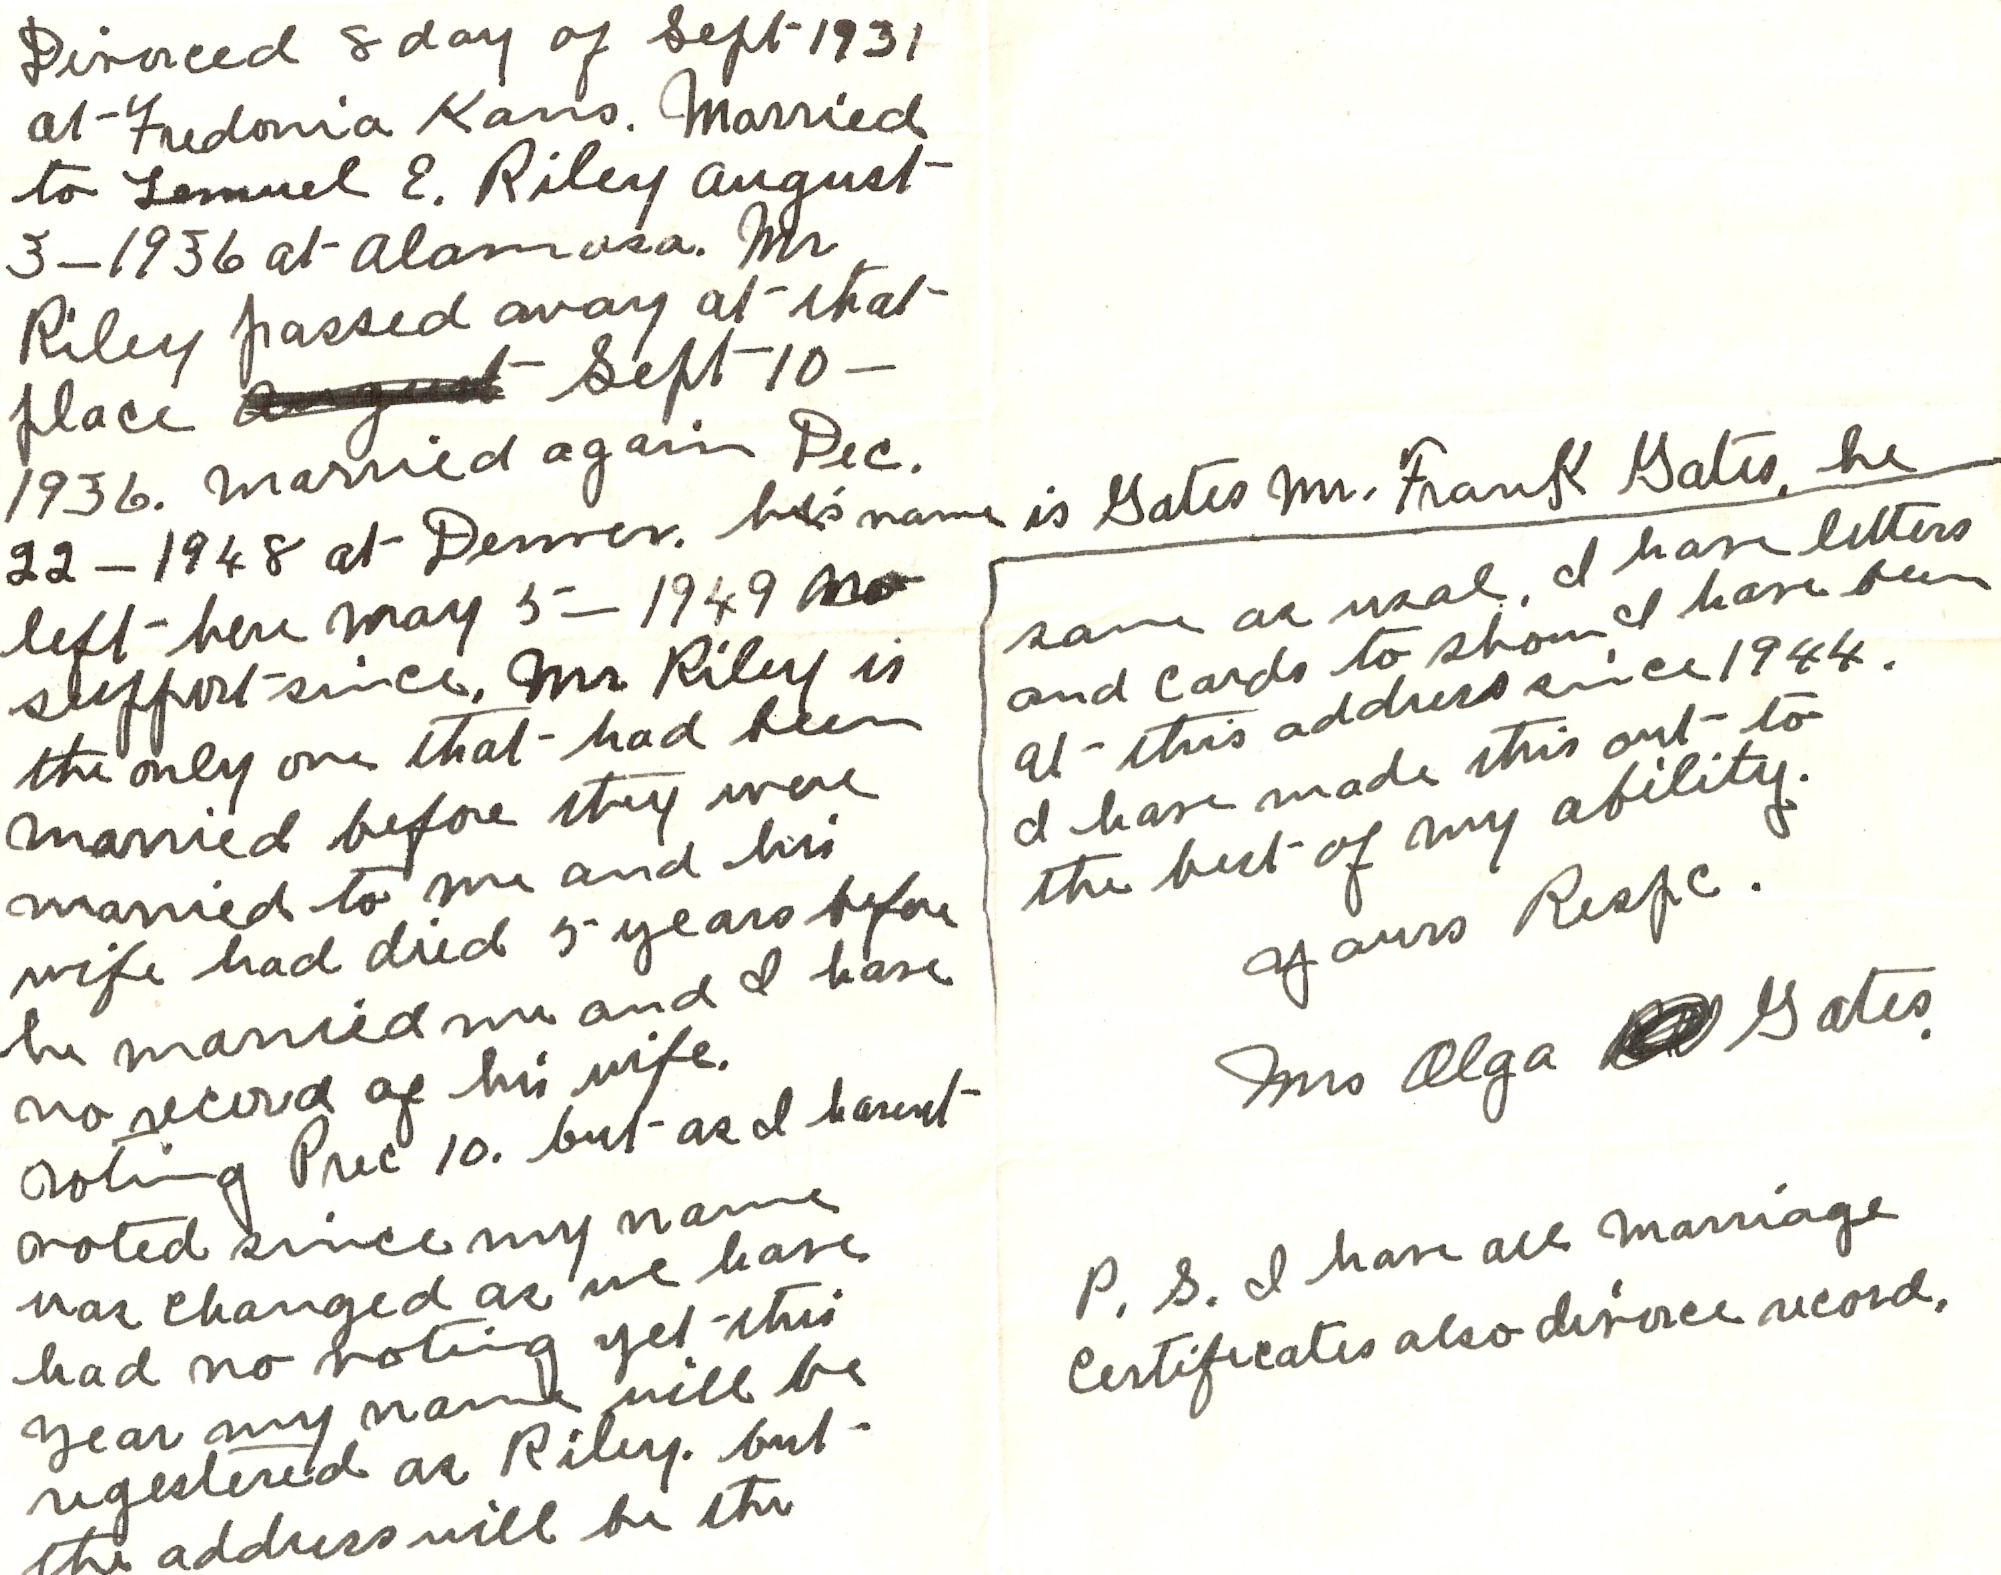 Divorced 8 day of Sept 1931
at Fredonia Kans. Married
to Lemuel E. Riley August
3 – 1936 at Alamosa. Mr
Riley passed away at that
place august Sept 10 –
1936. married again Dec.
22 – 1948 at Denver. his name is Gates Mr. Frank Gates, he
left here may 5 – 1949 no
support since. Mr Riley is
the only one that had been
married before they were
married to me and his
wife had died 5 years before
he married me and I have
no record of his wife.
voting Prec 10. but as I havent
voted since my name
was changed as we have
had no voting yet this
year my name will be
regestered as Riley. but
the address will be the
same as usal, I have letters
and cards to show I have been
at this address since 1944.
I have made this out to
the best of my ability.
yours Respc.
Mrs Olga Gates.
P. S. I have all marriage
Certificates also divorce record.